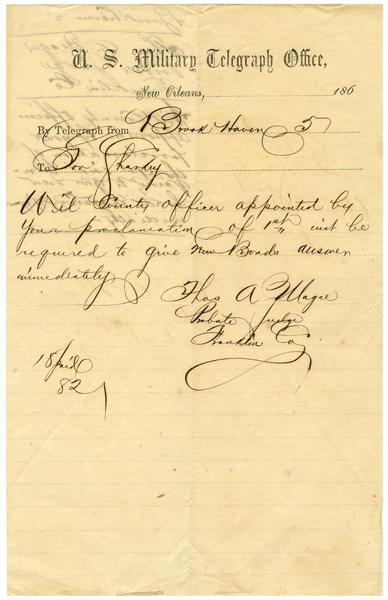 U. S. Military Telegraph Office,
New Orleans, 186
By Telegraph from Brook Haven 5
To Gov Sharkey
Will County officer appointed by
your proclamation of 1st inst be
required to give New Bonds answer
immediately
Thos A Magee
Probate Judge
Franklin Co
18 paid
82